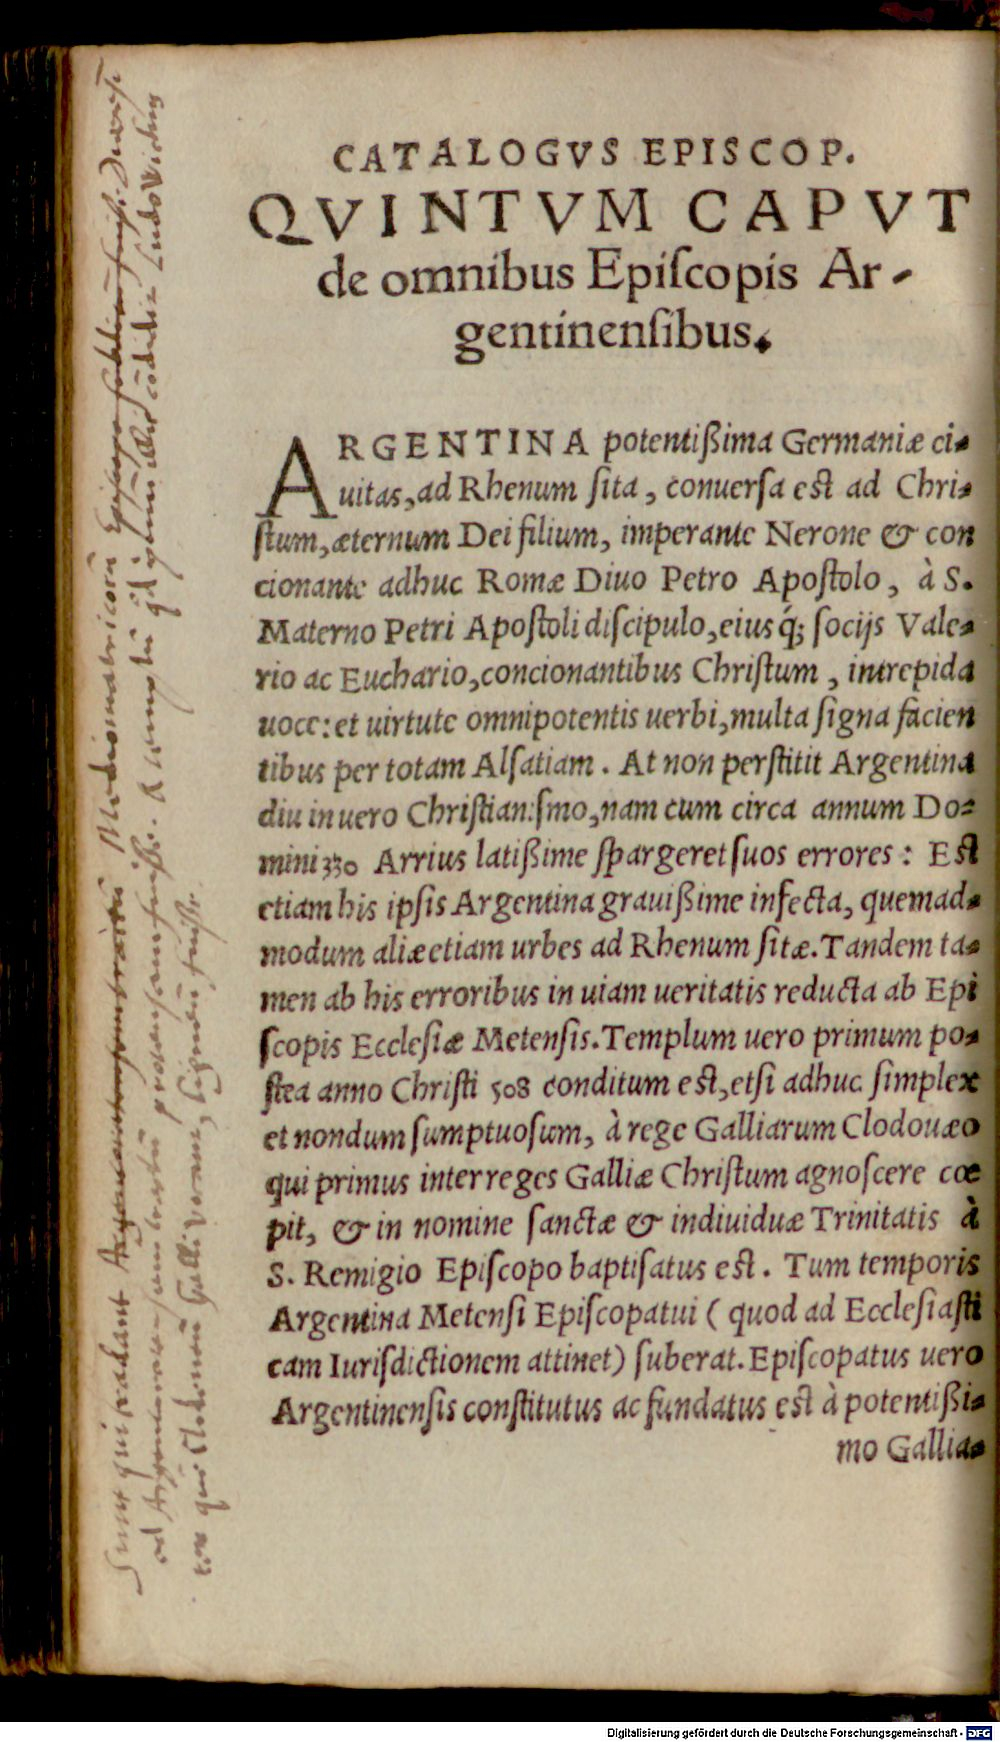 CATALOGVS EPISCOP.
QVINTVM CAPVT
de omnibus Epiſcopis Ar-
gentinenſibus.
ARGENTINA potentißima Germaniæ ci-
uitas, ad Rhenum ſita, conuerſa est ad Chri-
ſtum, æternum Dei filium, imperante Nerone & con
cionante adhuc Romæ Diuo Petro Apoſtolo, à S.
Materno Petri Apoſtoli diſcipulo, eius q́; ſocijs Vale-
rio ac Euchario, concionantibus Chriſtum, intrepida
uoce: et uirtute omnipotentis uerbi, multa ſigna facien
tibus per totam Alſatiam. At non perſtitit Argentina
diu in uero Chriſtian:ſmo, nam cum circa annum Do-
mini 330 Arrius latißime ſpargeret ſuos errores: Est
etiam his ipſis Argentina grauißime infecta, quemad-
modum aliæ etiam urbes ad Rhenum ſitæ. Tandem ta-
men ab his erroribus in uiam ueritatis reducta ab Epi
ſcopis Eccleſiæ Metenſis. Templum uero primum po-
ſtea anno Chriſti 508 conditum est, etſi adhuc ſimplex
et nondum ſumptuoſum, à rege Galliarum Clodouæo
qui primus inter reges Galliæ Chriſtum agnoſcere cœ
pit, & in nomine ſanctæ & indiuiduæ Trinitatis à
S. Remigio Epiſcopo baptiſatus est. Tum temporis
Argentina Metenſi Epiſcopatui (quod ad Eccleſiaſti
cam Iuriſdictionem attinet) ſuberat. Epiſcopatus uero
Argentinenſis conſtitutus ac fundatus est à potentißi-
mo Gallia-
Sunt qui tradant Mediomatricorū
Ludovicus
Digitalisierung gefördert durch die Deutsche Forschungsgemeinschaft - DFG